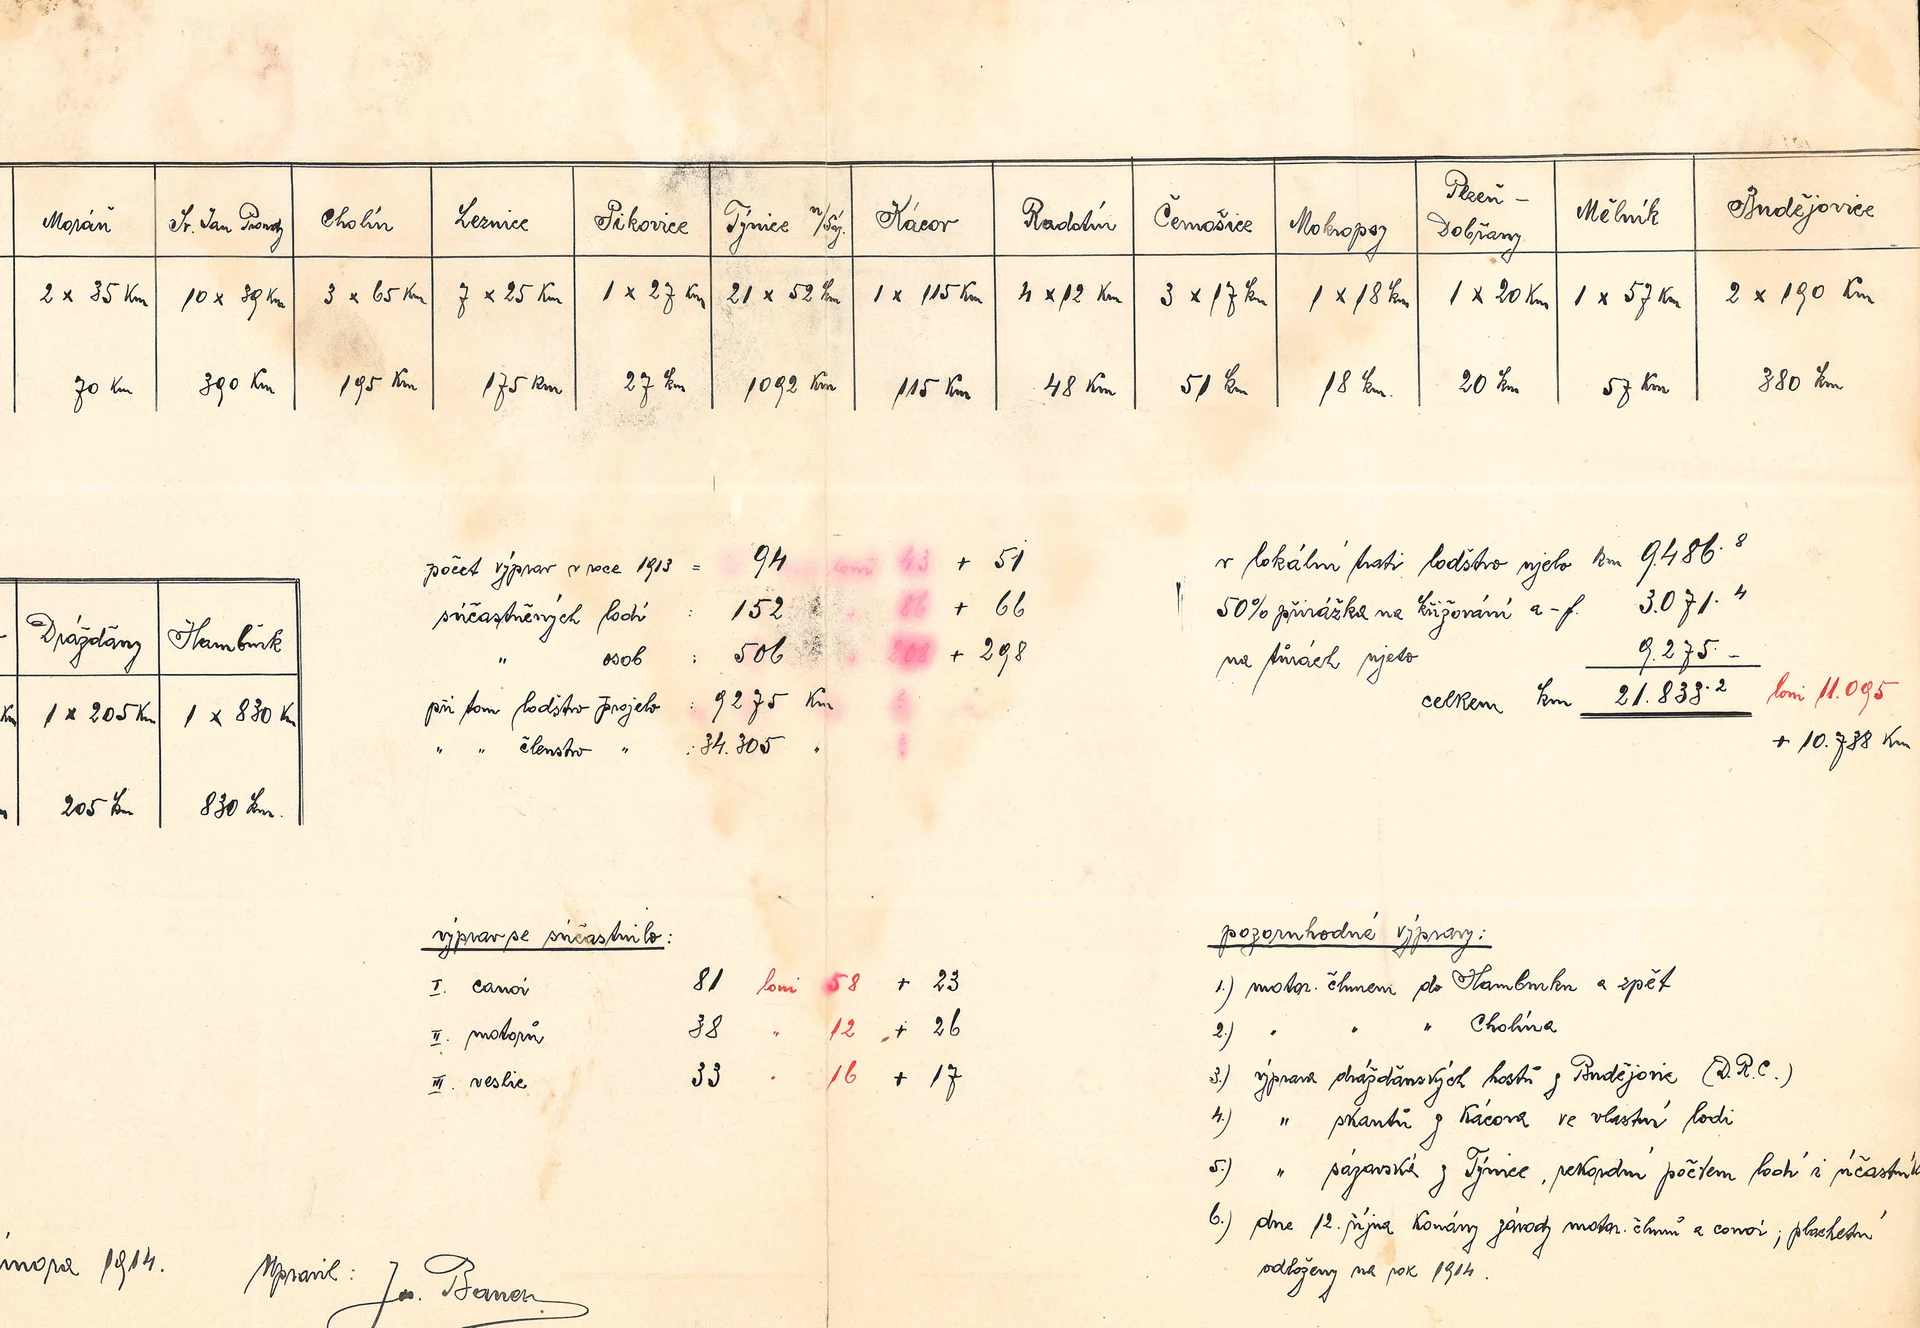 Moráň Sv. Jan Proudy Cholín Leznice Pikovice Týnice n/Sáz. Kácov Radotín Černošice Mokropsy Plzeň - Dobřany Mělník Budějovice
2 x 35 Km 10 x 39 Km 3 x 65 Km 7 x 25 Km 1 x 27 Km 21 x 52 km 1 x 115 Km 4 x 12 Km 3 x 17 km 1 x 18 km 1 x 20 Km 1 x 57 Km 2 x 190 Km
70 Km 390 Km 195 Km 175 Km 27 km 1092 Km 115 Km 48 Km 51 km 18 km. 20 km 57 Km 380 km
Drážďany Hamburk
Km 1 x 205 Km 1 x 830 Km
205 km 830 km.
počet výprav v roce 1913 = 94 loni 43 + 51
súčastněných lodí : 152 " 86 + 66
" osob : 506 " 208 + 298
při tom loďstvo projelo : 9275 Km ?
" " členstvo " : 34.305 " ?
v lokální trati loďstvo ujelo km 9.486.8
50% přirážka na křižování a-f. 3.071.4
na túrách ujeto 9.275.-
celkem km 21.833.2 loni 11.095
+ 10.738 Km
výprav se súčastnilo:
I. canoí 81 loni 58 + 23
II. motorů 38 " 12 + 26
III. veslic 33 " 16 + 17
pozoruhodné výpravy:
1.) motor. člunem do Hamburku a zpět
2.) " " " Cholína
3.) výprava drážďanských hostů z Budějovic (D.R.C.)
4.) " skautů z Kácova ve vlastní lodi
5.) " sázavská z Týnice, rekordní počtem lodí i účastník
6.) dne 12. října konány závody motor. člunů a canoí; plachetní
odloženy na rok 1914.
února 1914. Upravil: